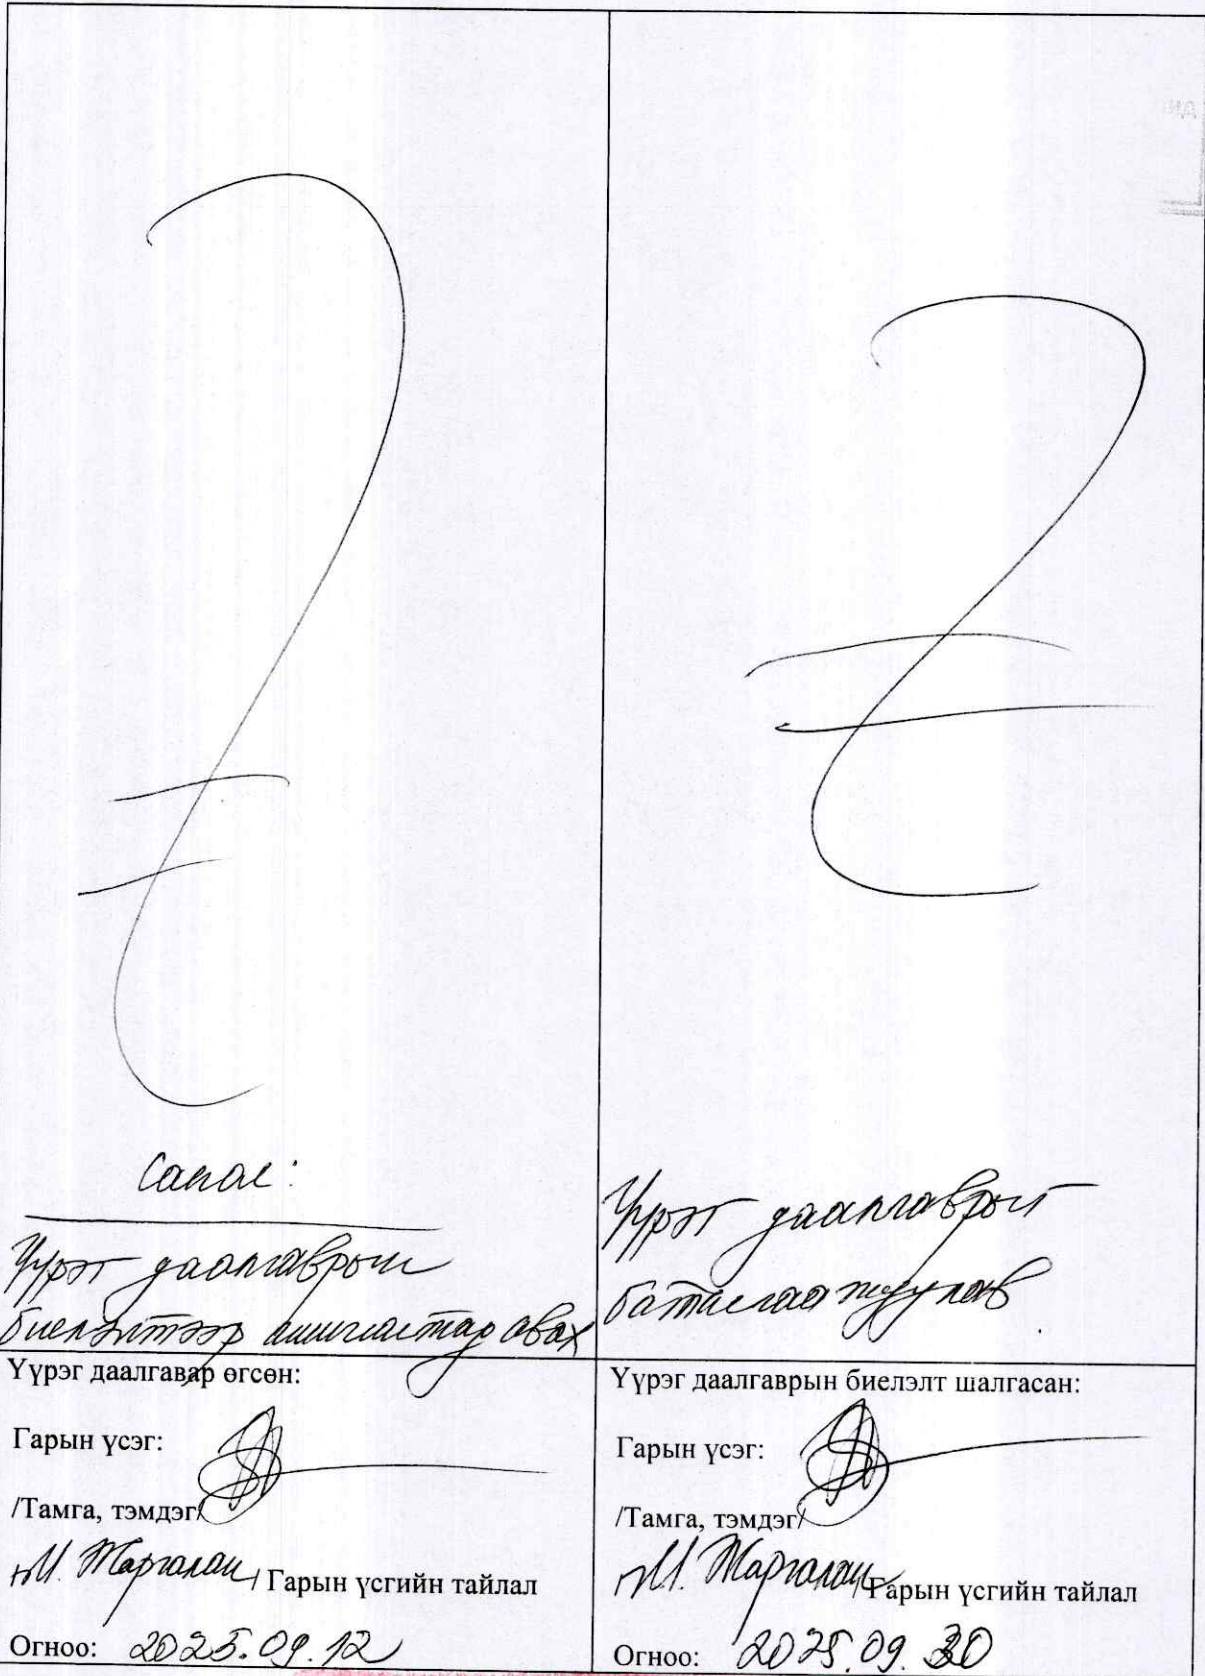 Санал:
Үүрэг даалгаврын
биелэлтээр ашиглалтад авах
Үүрэг даалгаврыг
баталгаажуулав
Үүрэг даалгавар өгсөн:
Гарын үсэг:
/Тамга, тэмдэг/
М. Жаргалан / Гарын үсгийн тайлал
Огноо: 2025.09.12
Үүрэг даалгаврын биелэлт шалгасан:
Гарын үсэг:
/Тамга, тэмдэг/
М. Жаргалан / Гарын үсгийн тайлал
Огноо: 2025.09.30